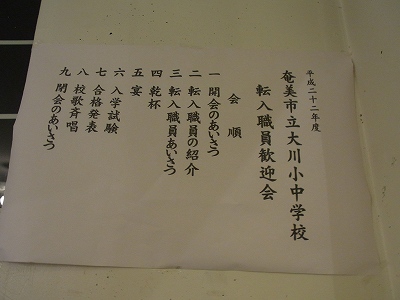 平成二十二年度
奄美市立大川小中学校
転入職員歓迎会
会順
一 開会のあいさつ
二 転入職員の紹介
三 転入職員あいさつ
四 乾杯
五 宴
六 入学試験
七 合格発表
八 校歌斉唱
九 閉会のあいさつ